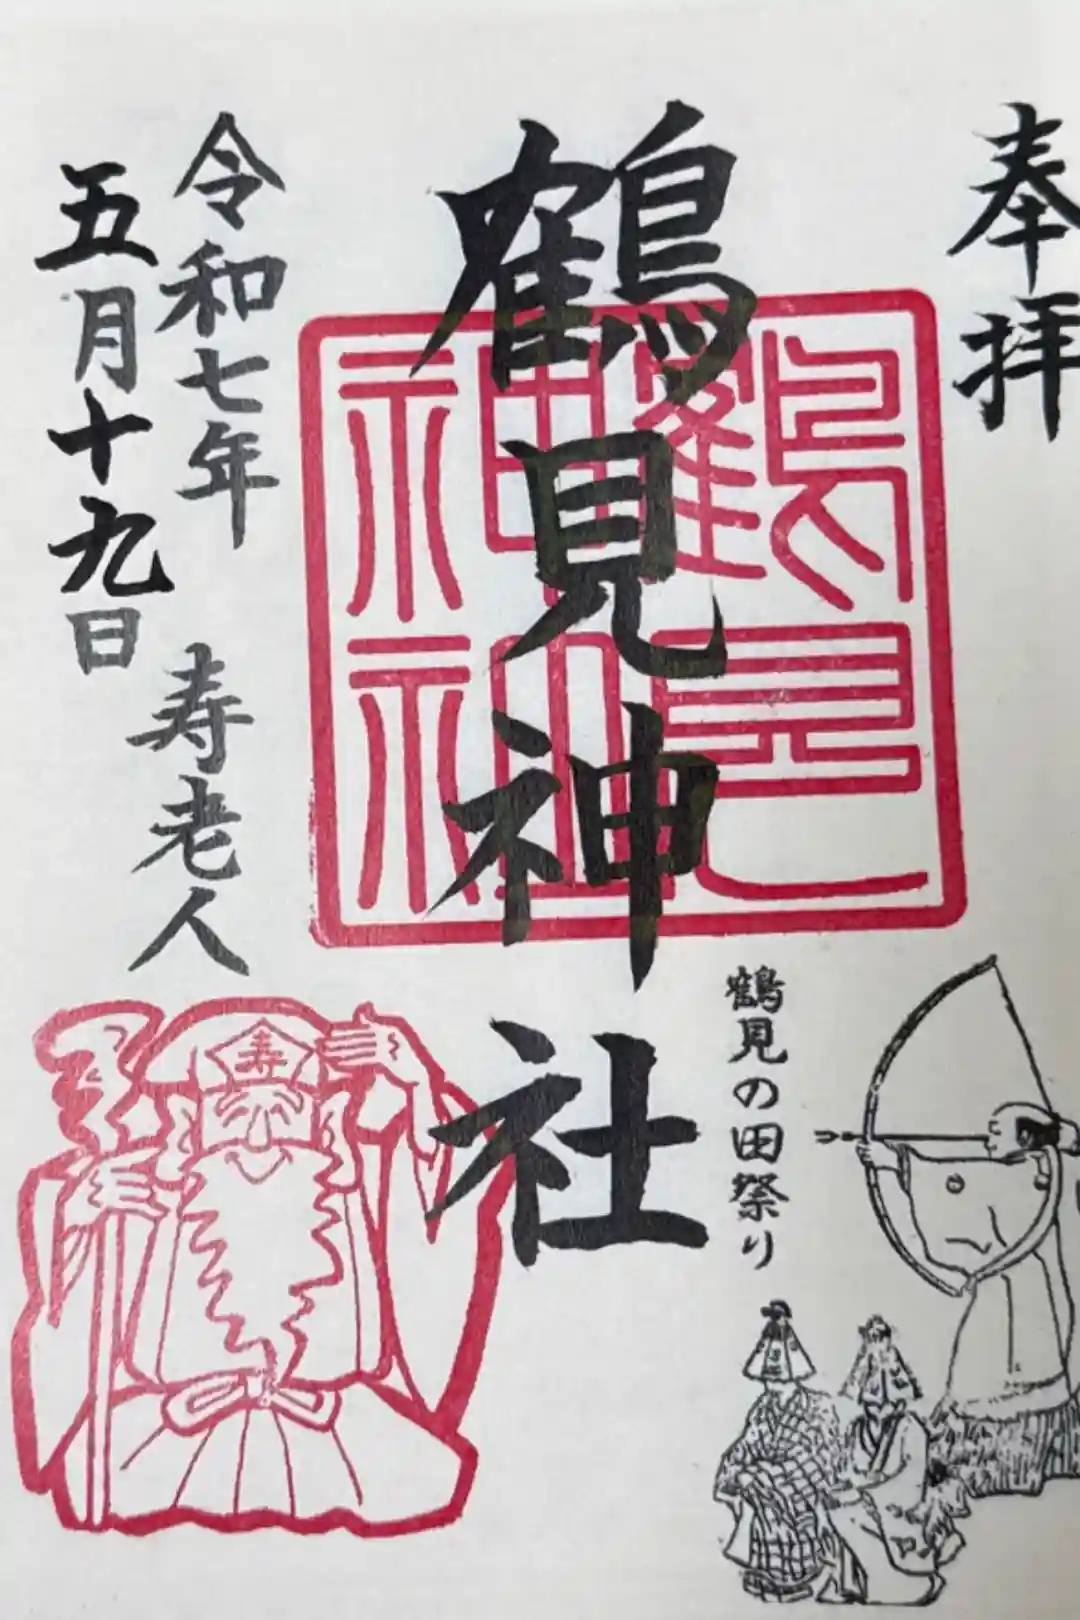 奉拝
鶴見神社
鶴見
神社
鶴見の田祭り
令和七年
五月十九日
寿老人
寿